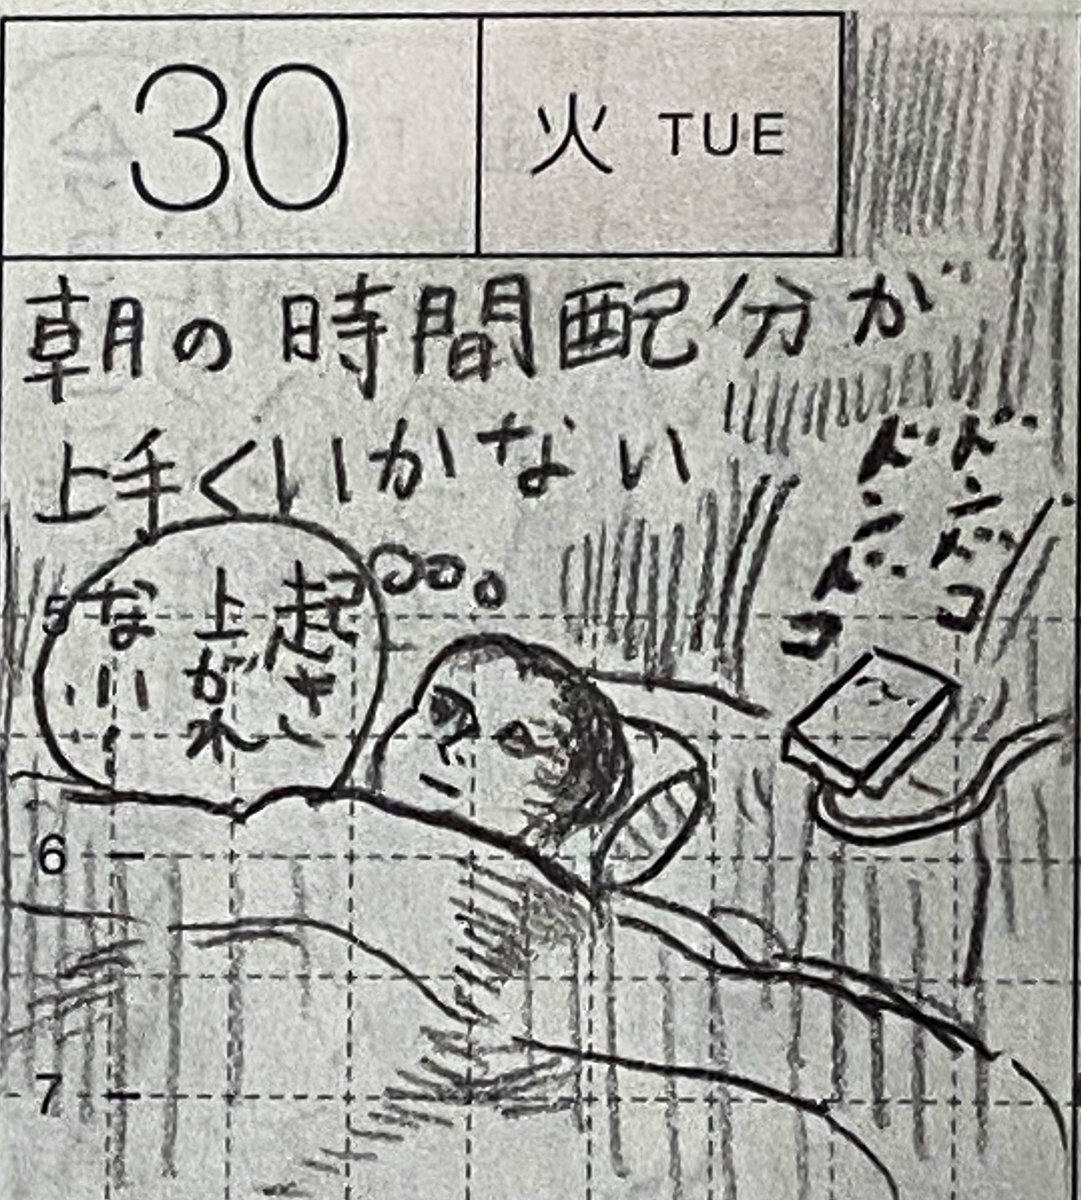 30
火 TUE
朝の時間配分が
上手くいかない
ドンドコ
ドンドコ
起き
上がれ
ない
5
6
7